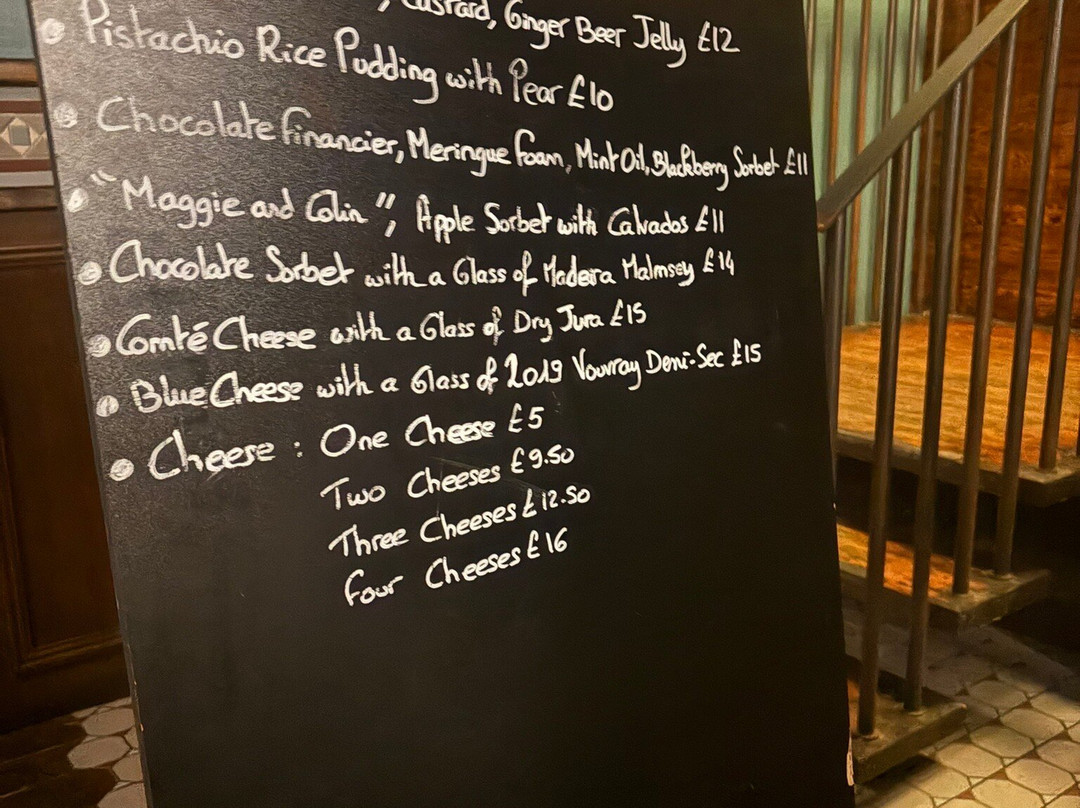 Custard, Ginger Beer Jelly £12
Pistachio Rice Pudding with Pear £10
Chocolate financier, Meringue foam, Mint Oil, Blackberry Sorbet £11
"Maggie and Colin", Apple Sorbet with Calvados £11
Chocolate Sorbet with a Glass of Madeira Malmsey £14
Comté Cheese with a Glass of Dry Jura £15
Blue Cheese with a Glass of 2019 Vouvray Demi-Sec £15
Cheese : One Cheese £5
Two Cheeses £9.50
Three Cheeses £12.50
four Cheeses £16